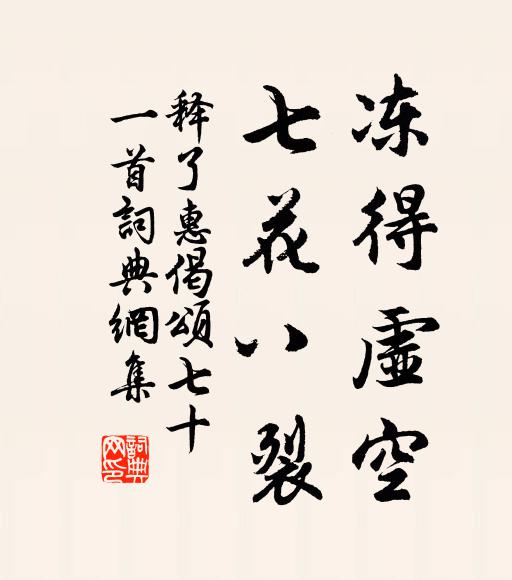 冻得虚空
七花八裂
释了惠偈颂七十
一首詞典網集
詞典网印